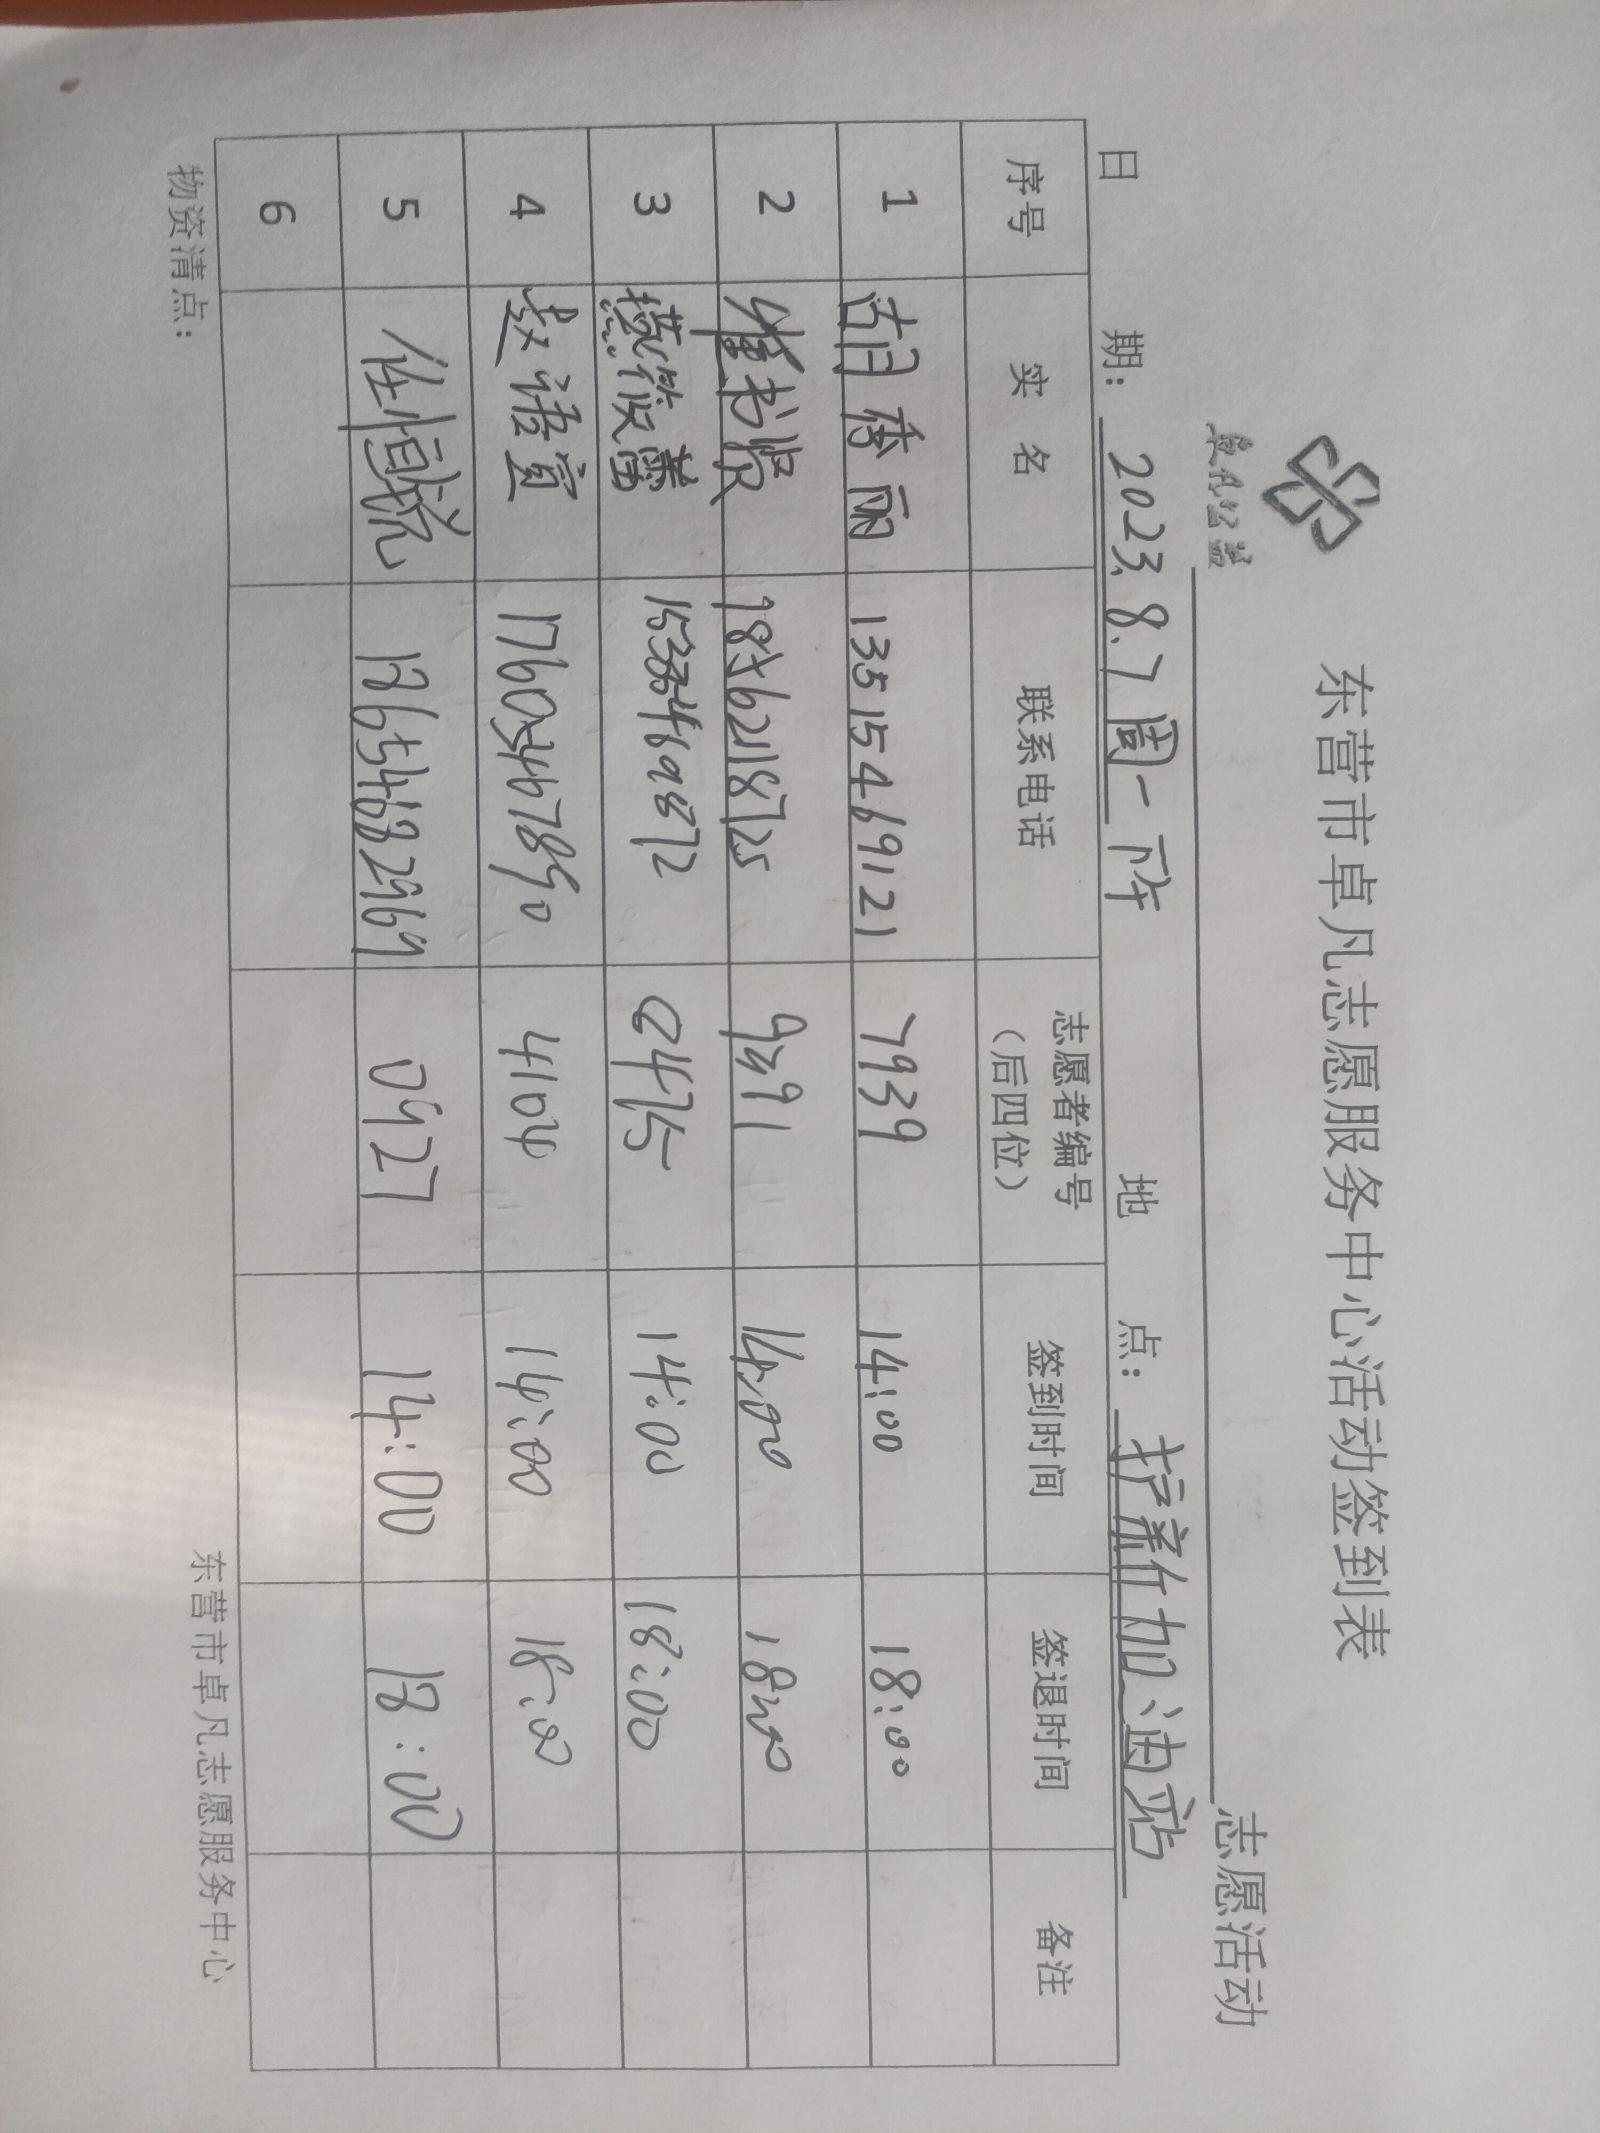 东营市卓凡志愿服务中心活动签到表
卓凡公益 志愿活动
日 期: 2023.8.7 周一下午 地 点: 护新加油站
序号 实 名 联系电话 志愿者编号（后四位） 签到时间 签退时间 备注
1 秀丽 13515469121 7939 14:00 18:00
2 崔书 18562118725 14:00 18:00
3 燕筱蕾 15335469872 0475 14:00 18:00
4 赵语萱 17605467890 4104 14:00 18:00
5 任 18654682969 0927 14:00 18:00
6
物资清点: 东营市卓凡志愿服务中心